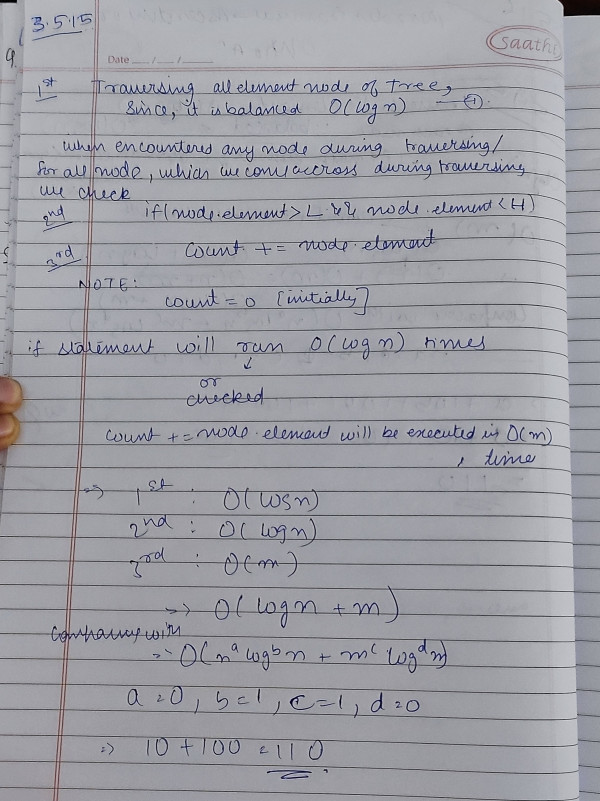 3.5.15
Saathi
9.
Date ___/___/___
1st Traversing all element node of Tree,
Since, it is balanced O(log n) —①.
when encountered any node during traversing/
for all node, which we come across during traversing
we check
2nd if(node.element > L && node.element < H)
3rd count += node.element
NOTE:
count = 0 [initially]
if statement will run O(log n) times
↓
or
checked
count += node.element will be executed in O(m)
, time
=> 1st : O(logn)
2nd : O(logn)
3rd : O(m)
=> O(logn + m)
Comparing with
=> O(n^a log^b n + m^c log^d n)
a = 0, b = 1, c = 1, d = 0
=> 10 + 100 = 110